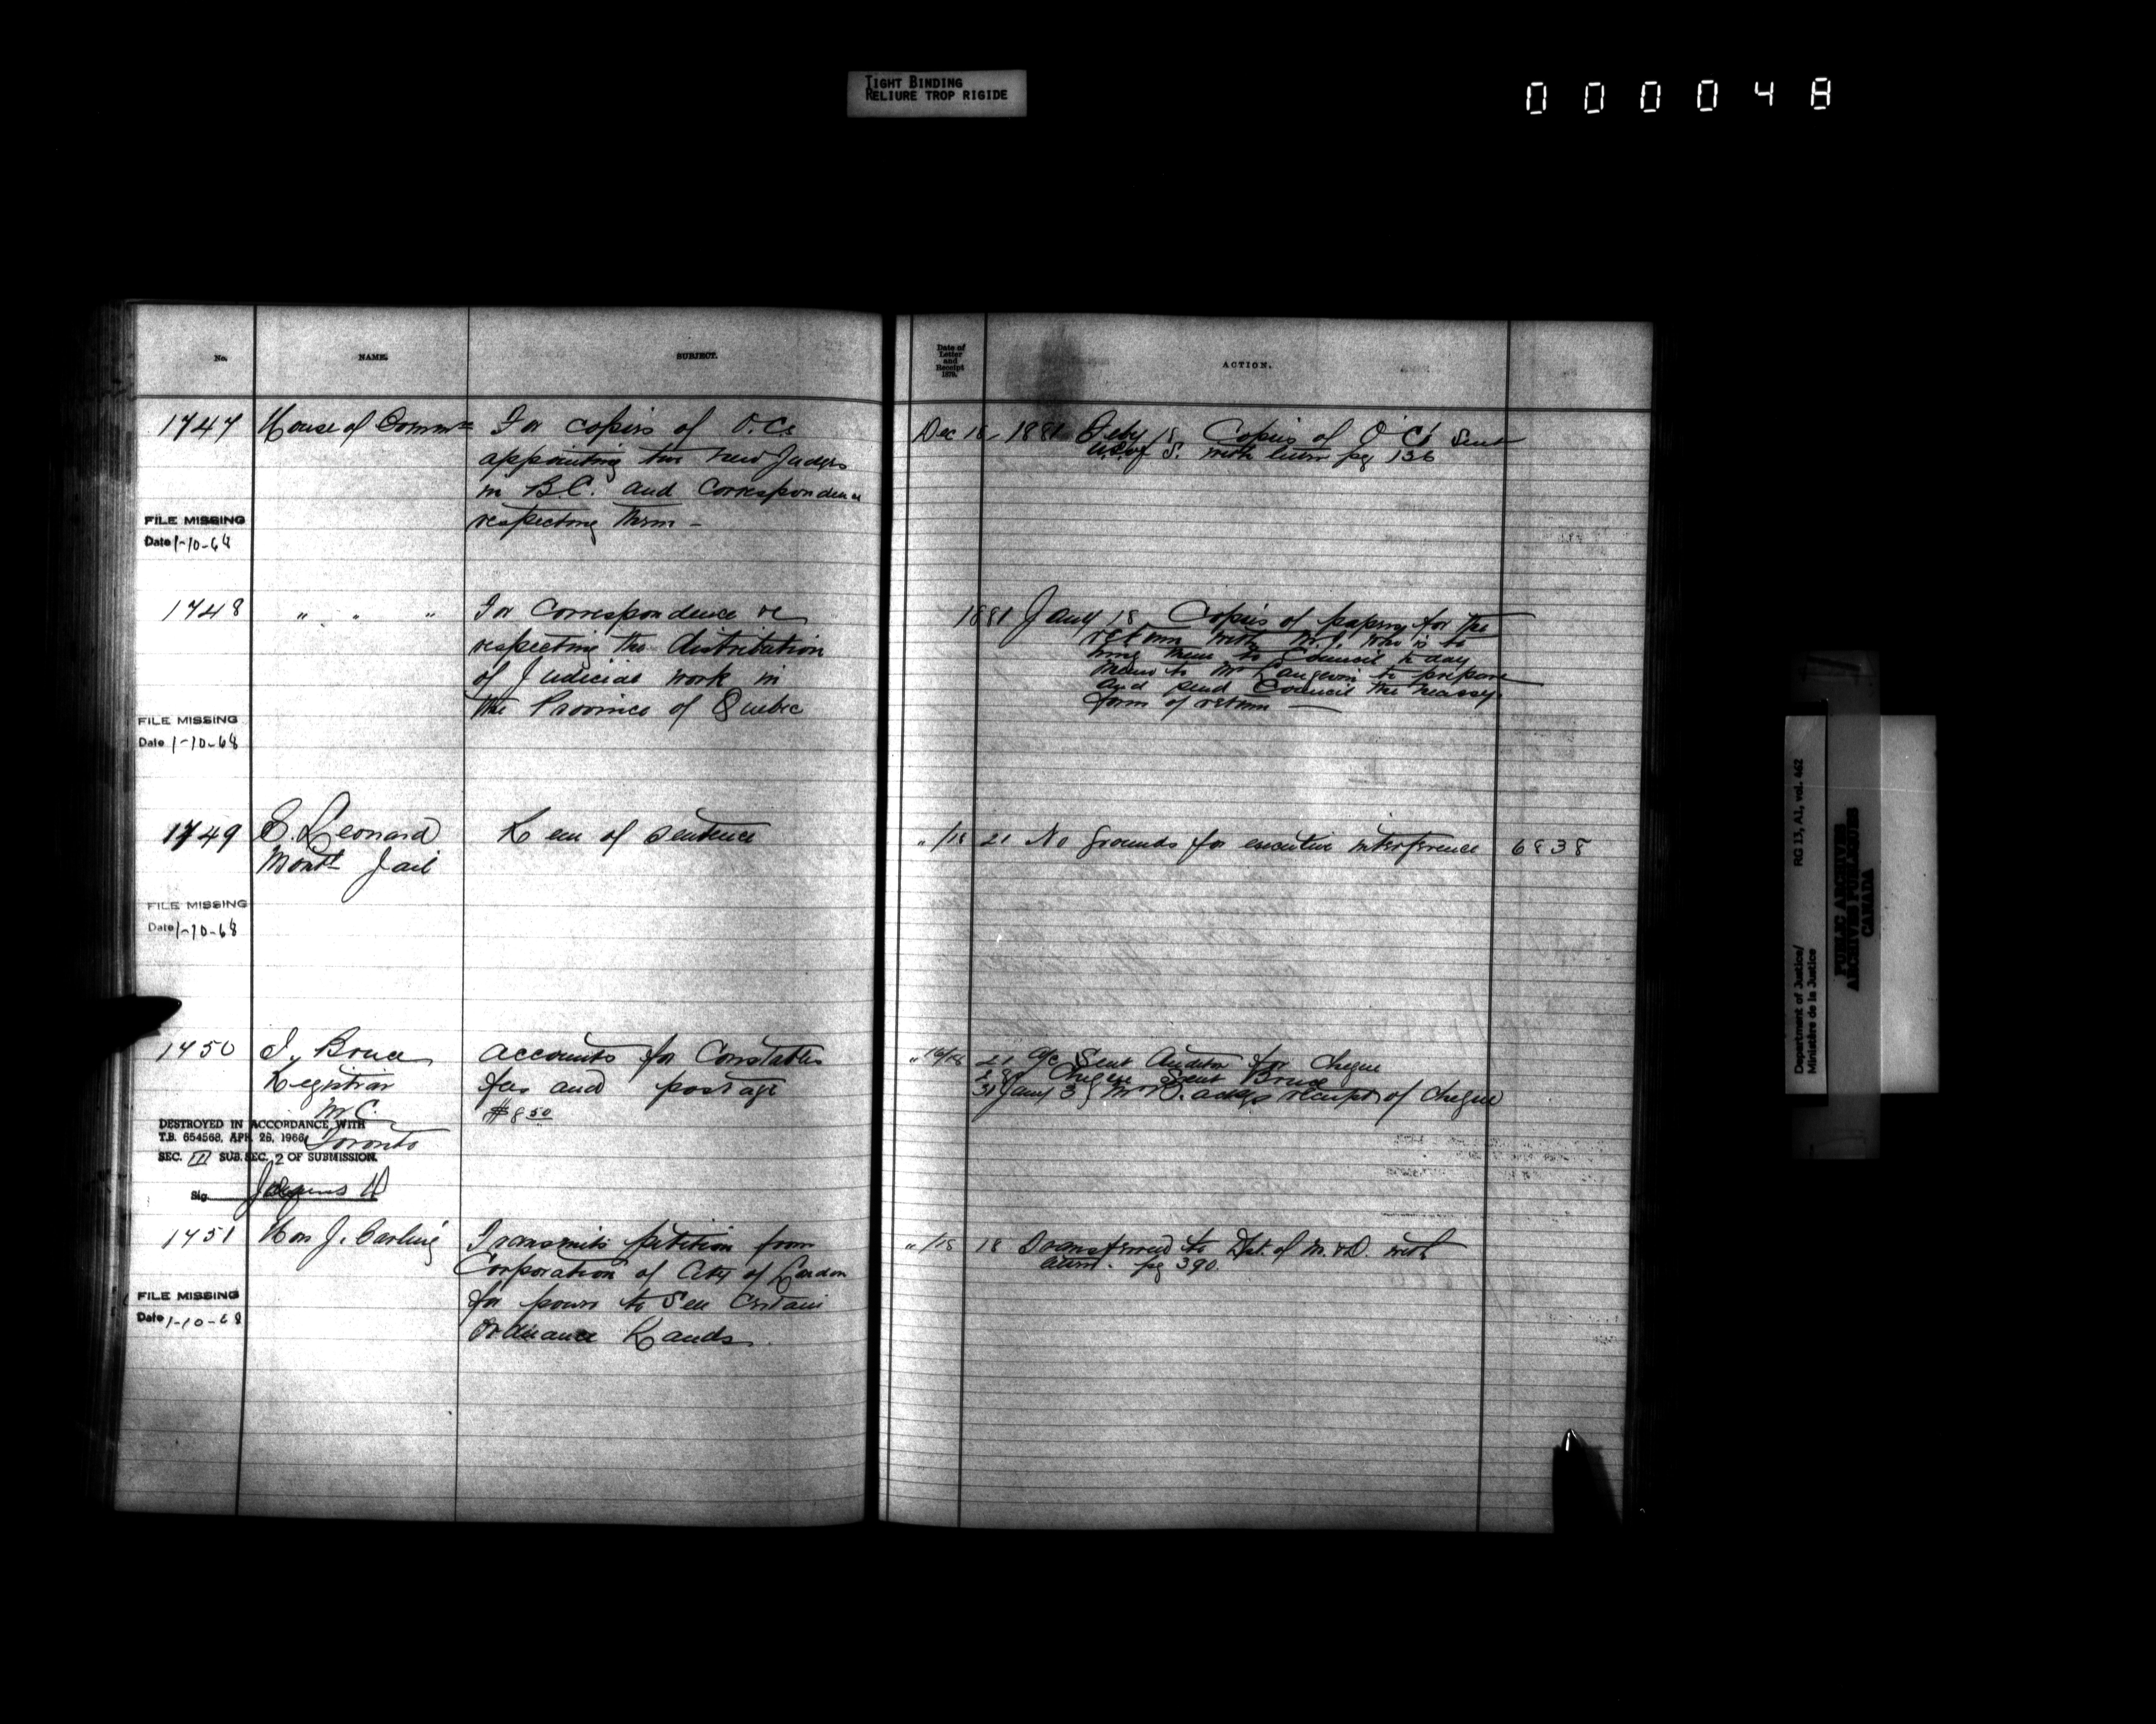 TIGHT BINDING
RELIURE TROP RIGIDE
000048
No.
NAME.
SUBJECT.
1747
House of Comm
For copies of O.Cs
appointing two new Judges
in B.C. and Correspondence
respecting them -
FILE MISSING
Date 1-10-68
1748
" " "
For Correspondence re
respecting the distribution
of Judicial work in
the Province of Quebec
FILE MISSING
Date 1-10-68
1749
C. Leonard
Montl Jail
Rem of Sentence
FILE MISSING
Date 1-10-68
1750
J. Bruce
Registrar
M C.
Toronto
Accounts for Constables
fees and postage
$8 50
DESTROYED IN ACCORDANCE WITH
T.B. 654568, APR. 28, 1966
SEC. II SUB. SEC. 2 OF SUBMISSION.
Sig.
1751
Hon J. Carling
Transmits petition from
Corporation of City of London
for power to Sell Certain
Ordnance Lands.
FILE MISSING
Date 1-10-68
Date of
Letter
and
Receipt
1879.
ACTION.
Dec 18, 1881 Feby 18. Copies of O Cs Sent
U.S. of S. with return pg 136
1881 Jany 18 Copies of papers for the
return with M.J. who is to
bring them to Council to day
Memo to Mr Langevin to prepare
and send Council the necessy
form of return —
" /18 21 No grounds for executive interference 6838
" 16/18 21 a/c Sent Auditor for Cheque
Cheque sent Bruce
31 Jany 3 Mr B. ackgs receipt of Cheque
" /18 18 Transferred to Dpt. of M. & D. with
pg 390.
Department of Justice/
Ministère de la Justice
RG 13, A1, vol. 462
PUBLIC ARCHIVES
ARCHIVES PUBLIQUES
CANADA